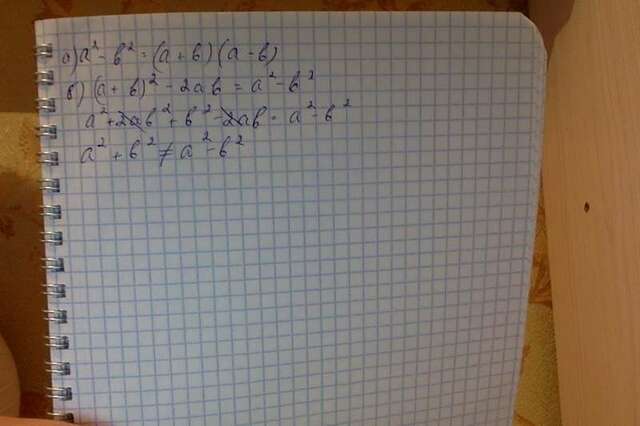 а) a² - b² = (a + b) (a - b)
б) (a + b)² - 2ab = a² - b²
a² + 2ab² + b² - 2ab = a² - b²
a² + b² ≠ a² - b²